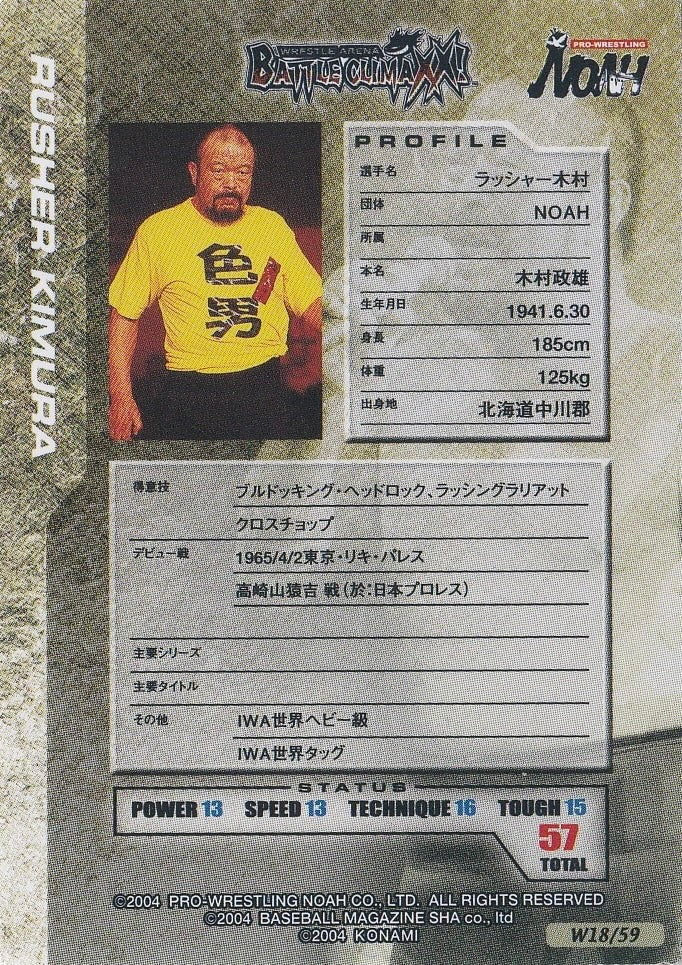 RUSHER KIMURA
WRESTLE ARENA
BATTLE CLIMAXX!
PRO-WRESTLING
NOAH
PROFILE
選手名 ラッシャー木村
団体 NOAH
所属
本名 木村政雄
生年月日 1941.6.30
身長 185cm
体重 125kg
出身地 北海道中川郡
色
男
得意技 ブルドッキング・ヘッドロック、ラッシングラリアット
クロスチョップ
デビュー戦 1965/4/2東京・リキ・パレス
高崎山猿吉 戦（於：日本プロレス）
主要シリーズ
主要タイトル
その他 IWA世界ヘビー級
IWA世界タッグ
STATUS
POWER 13 SPEED 13 TECHNIQUE 16 TOUGH 15
57
TOTAL
©2004 PRO-WRESTLING NOAH CO., LTD. ALL RIGHTS RESERVED
©2004 BASEBALL MAGAZINE SHA co., ltd
©2004 KONAMI
W18/59